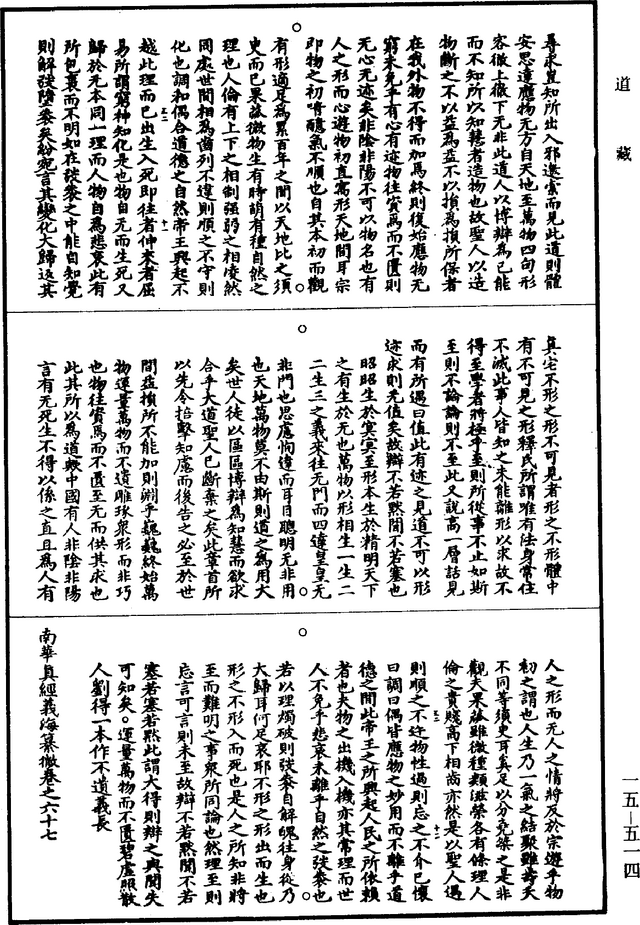 道藏
尋求豈知所出入邪邊索而見此道則體
安思達應物无方自天地至萬物四句形
容徹上徹下无非此道人以博辯為已能
而不知所以知慧者造物也故聖人以造
物斷之不以益為益不以損為損所保者
在我外物不得而加焉終則復始應物无
窮未免乎有心有迹物往資焉而不匱則
无心无迹矣非陰非陽不可以物名也有
人之形而心遊物初直寓形天地間耳宗
即物之初喑醷氣不順也自其本初而觀
有形適足為累百年之間以天地比之須
史而已果蓏微物生有時萌有種自然之
理也人倫有上下之相制强弱之相凌然
同處世間相為齒列不違則順之不守則
化也調和偶合道德之自然帝王興起不
越此理而已出生入死即往者伸來者屈
易所謂窮神知化是也物自无而生死又
歸於无本同一理而人物自為悲哀此有
所包裹而不明如在弢袠之中能自知覺
則解弢墮袠矣紛宛言其變化大歸返其
真宅不形之形不可見者形之不形體中
有不可見之形釋氏所謂唯有法身常住
不滅此事人皆知之未能離形以求故不
得至學者將極乎至則所從事不止如斯
至則不論論則不至此又說高一層話見
而有所遇曰值此有迹之見道不可以形
迹求則无值矣故辯不若默聞不若塞也
昭昭生於冥冥至形本生於精明天下
之有生於无也萬物以形相生一生二
二生三之義來往无門而四達皇皇无
非門也思慮恂達而耳目聰明无非用
也天地萬物莫不由斯則道之為用大
矣世人徒以區區博辯為知慧而欲求
合乎大道聖人已斷棄之矣此章首所
以先令掊擊知慮而後告之必至於世
間益損所不能加則淵乎巍巍終始萬
物運量萬物而不遺雕琢衆形而非巧
也物往資焉而不匱至无而供其求也
此其所以為道歟中國有人非陰非陽
言有无死生不得以係之直且為人有
人之形而无人之情將反於宗遊乎物
初之謂也人生乃一氣之結聚雖壽夭
不同等須史耳奚足以分堯桀之是非
觀夫果蓏雖微種類滋榮各有條理人
倫之貴賤高下相齒亦然是以聖人遇
則順之不迕物性過則忘之不介已懷
曰調曰偶皆應物之妙用而不離乎道
德之間此帝王之所興起人民之所依賴
者也夫物之出機入機亦其常理而世
人不免乎悲哀未離乎自然之弢袠也
若以理燭破則弢袠自解魄往身從乃
大歸耳何足哀耶不形之形出而生也
形之不形入而死也是人之所知非將
至而難明之事衆所同論也然理至則
忘言可言則未至故辯不若默聞不若
塞若塞若默此謂大得則辯之與聞失
可知矣。運量萬物而不匱碧虛照散
人劉得一本作不遺義長
南華真經義海纂微卷之六十七
一五—五一四